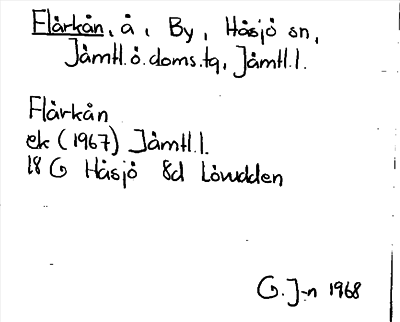 Flårkån, å, By, Håsjö sn,
Jämtl.ö.doms.tg, Jämtl.l.
Flårkån
ek (1967) Jämtl.l.
18 G Håsjö 8d Lövudden
G. J-n 1968